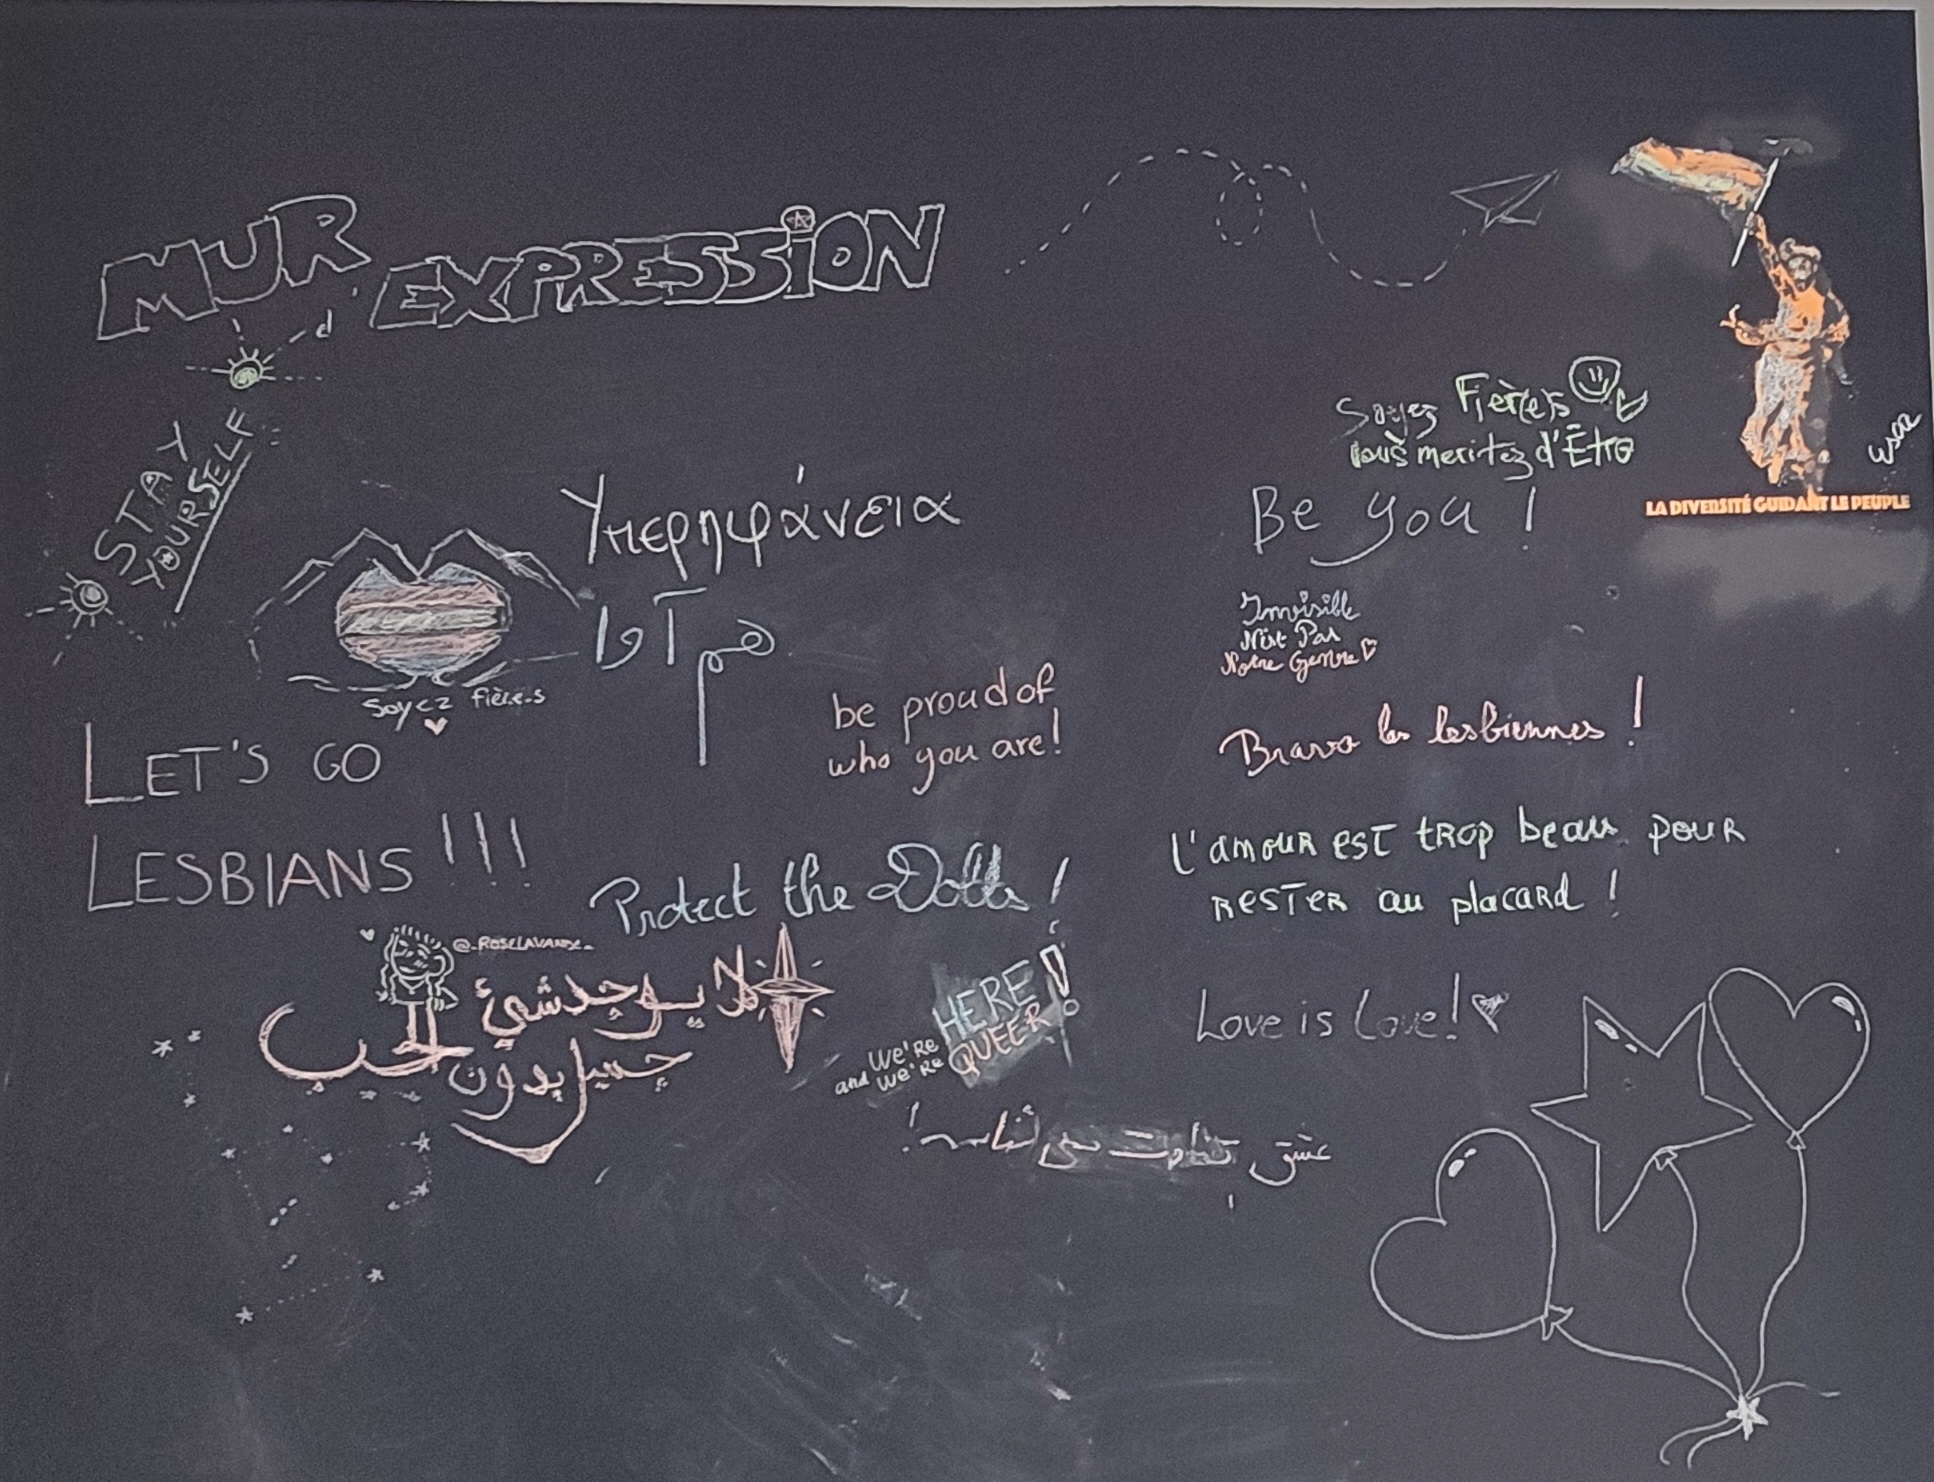 MUR d'EXPRESSION
STAY
YOURSELF
Soyez Fièr(e)s
vous meritez d'Être
LA DIVERSITÉ GUIDANT LE PEUPLE
Υπερηφάνεια
Be you !
Soyez fière.s
Invisible
N'est Pas
Notre Genre
be proud of
who you are!
LET'S GO
LESBIANS !!!
Bravo les lesbiennes !
L'amour est trop beau pour
rester au placard !
Protect the Dolls !
@_ROSELAVANDE_
لا يوجد شيئ
جميل بدون الحب
WE'RE HERE!
and WE'RE QUEER!
Love is Love!
عشق